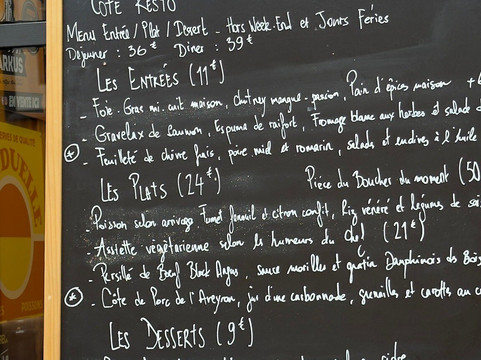 CÔTÉ RESTO
Menu Entrée / Plat / Dessert - Hors Week-End et Jours Fériés
Déjeuner : 36 € Dîner : 39 €
Les Entrées (11€)
- Foie Gras mi-cuit maison, chutney mangue-passion, Pain d'épices maison +6
- Gravelax de saumon, Espuma de raifort, Fromage blanc aux herbes et salade d
* - Feuilleté de chèvre frais, poire miel et romarin, salade et endives à l'huile
Les Plats (24€) Pièce du Boucher du moment (50
Poisson selon arrivage Fumet fenouil et citron confit, Riz vénéré et légumes de sai
Assiette végétarienne selon les humeurs du Chef (21€)
- Persillé de Bœuf Black Angus, sauce morilles et gratin Dauphinois des
* - Côte de Porc de l'Aveyron, jus d'une carbonnade, grenailles et carottes au c
Les Desserts (9€)
cidre
ARKUS
DUELLE